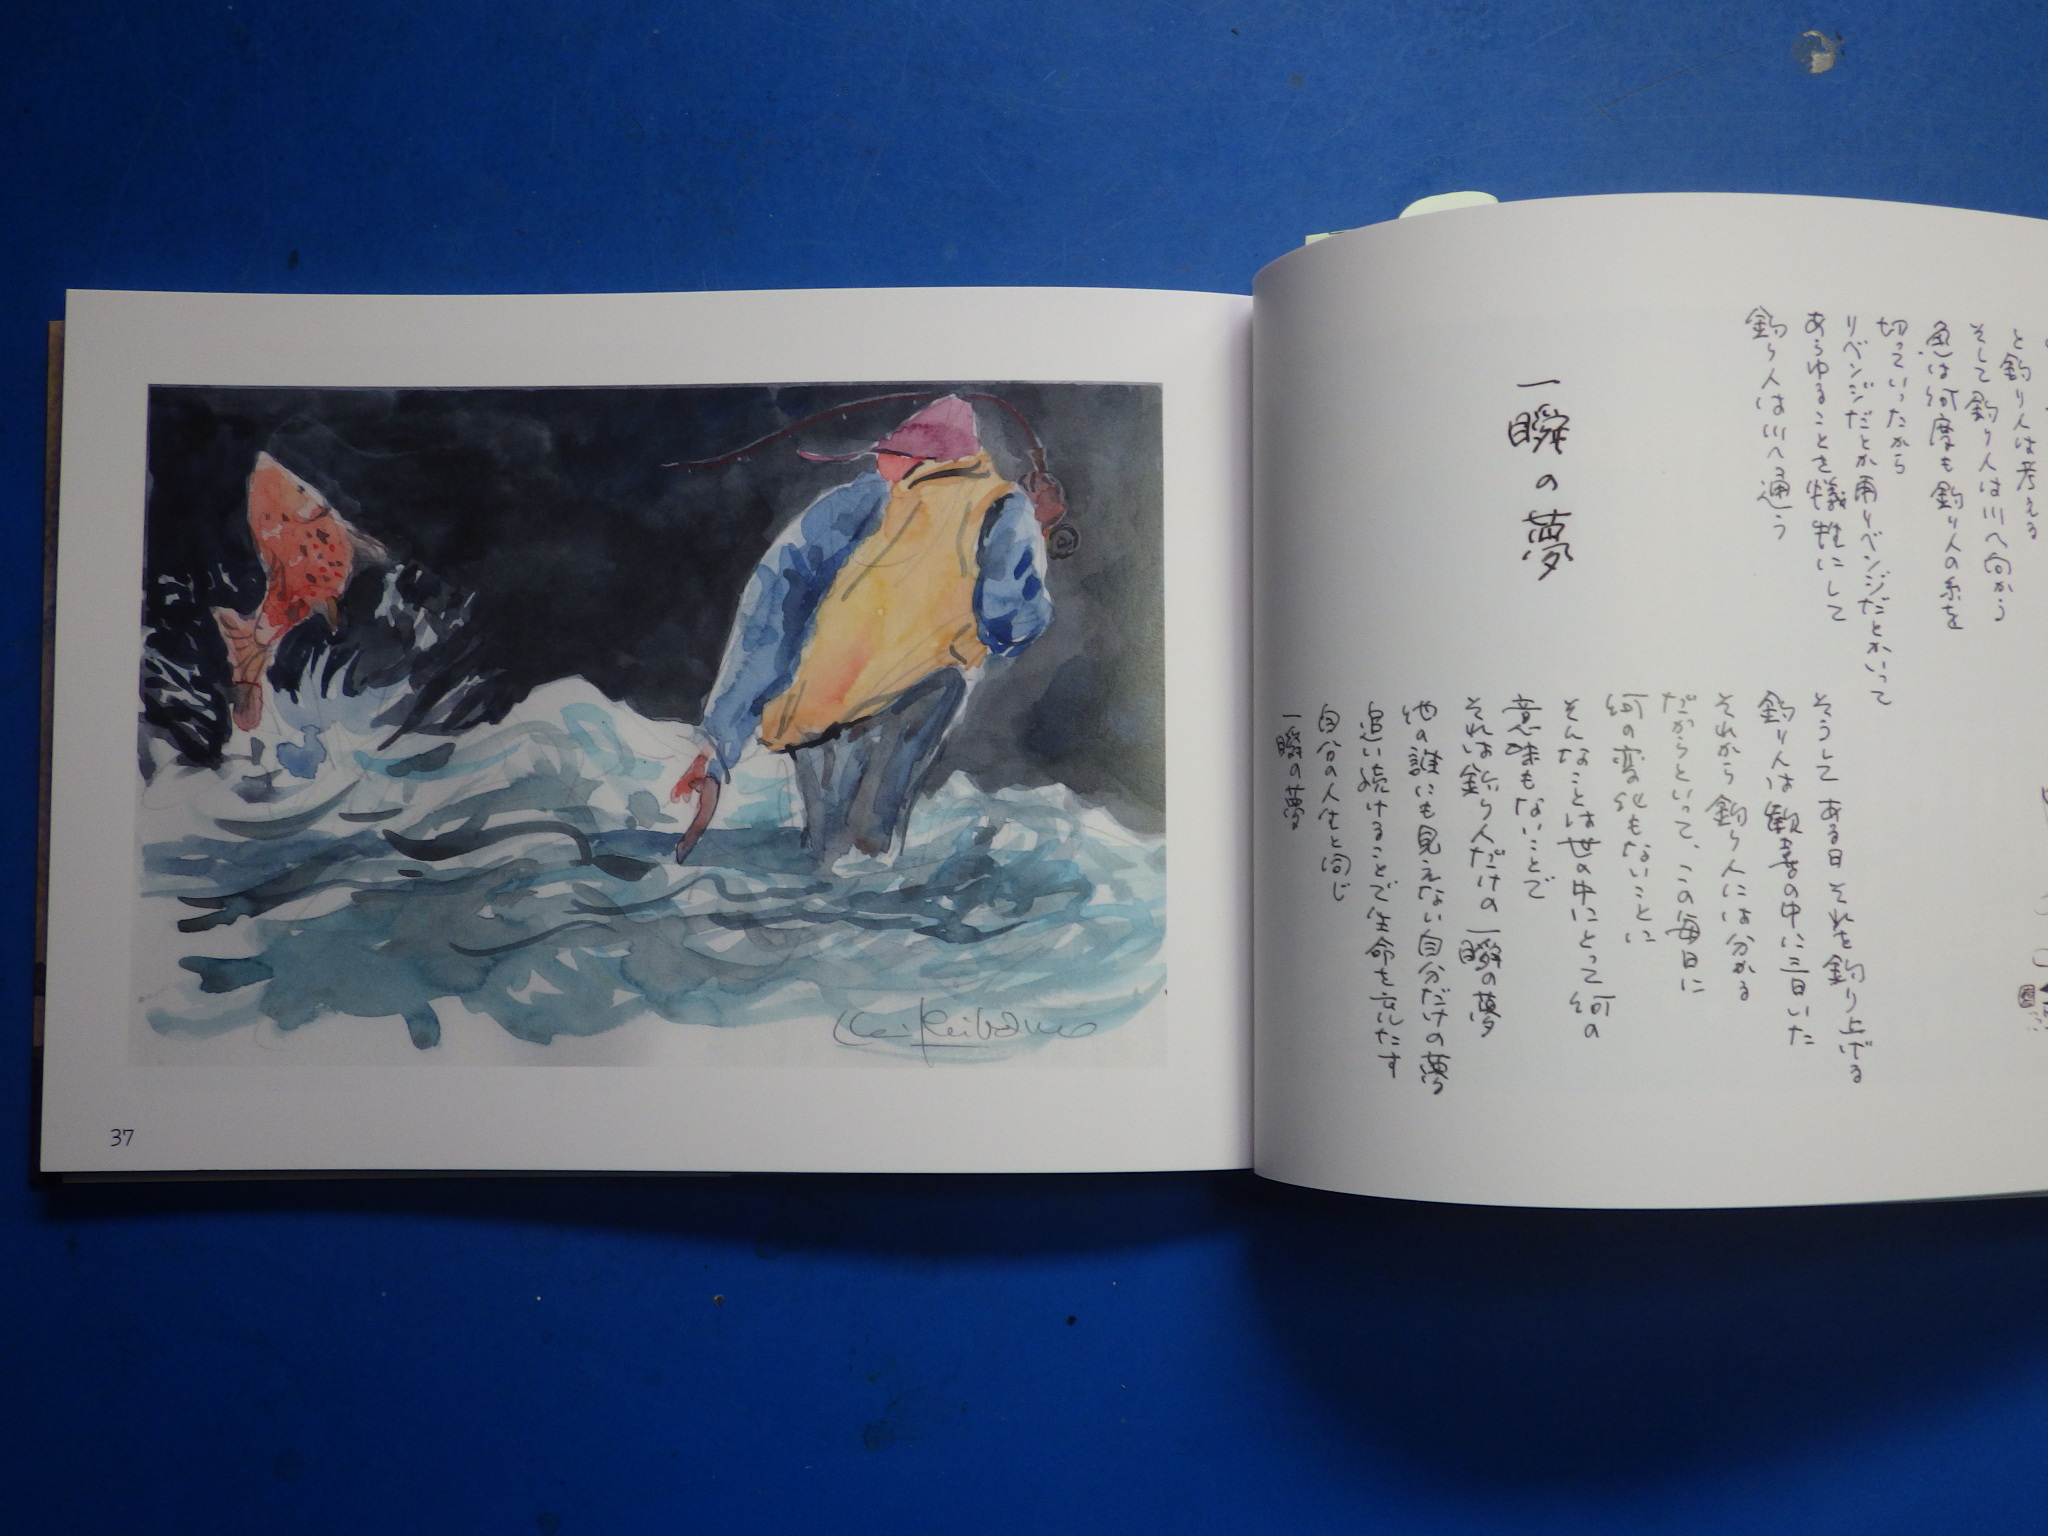 と釣り人は考える
そして釣り人は川へ向かう
魚は何度も釣り人の糸を
切っていったから
リベンジだとか再リベンジだとかいって
あらゆることを犠牲にして
釣り人は川へ通う
一瞬の夢
そうしてある日それを釣り上げる
釣り人は観客の中に三日いた
それから釣り人には分かる
だからといって、この毎日に
何の変化もないことに
そんなことは世の中にとって何の
意味もないことで
それは釣り人だけの一瞬の夢
他の誰にも見えない自分だけの夢
追い続けることで生命を充たす
自分の人生と同じ
一瞬の夢
37